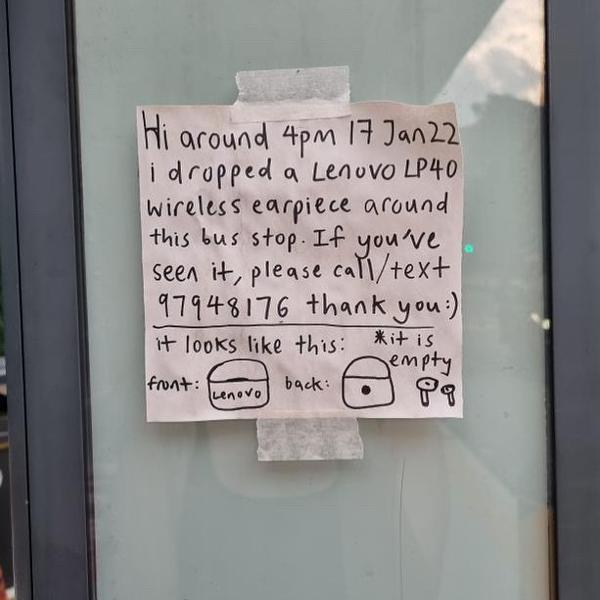 Hi around 4pm 17 Jan 22
i dropped a Lenovo LP40
wireless earpiece around
this bus stop. If you've
seen it, please call/text
97948176 thank you:)
it looks like this: *it is
empty
front: Lenovo back: